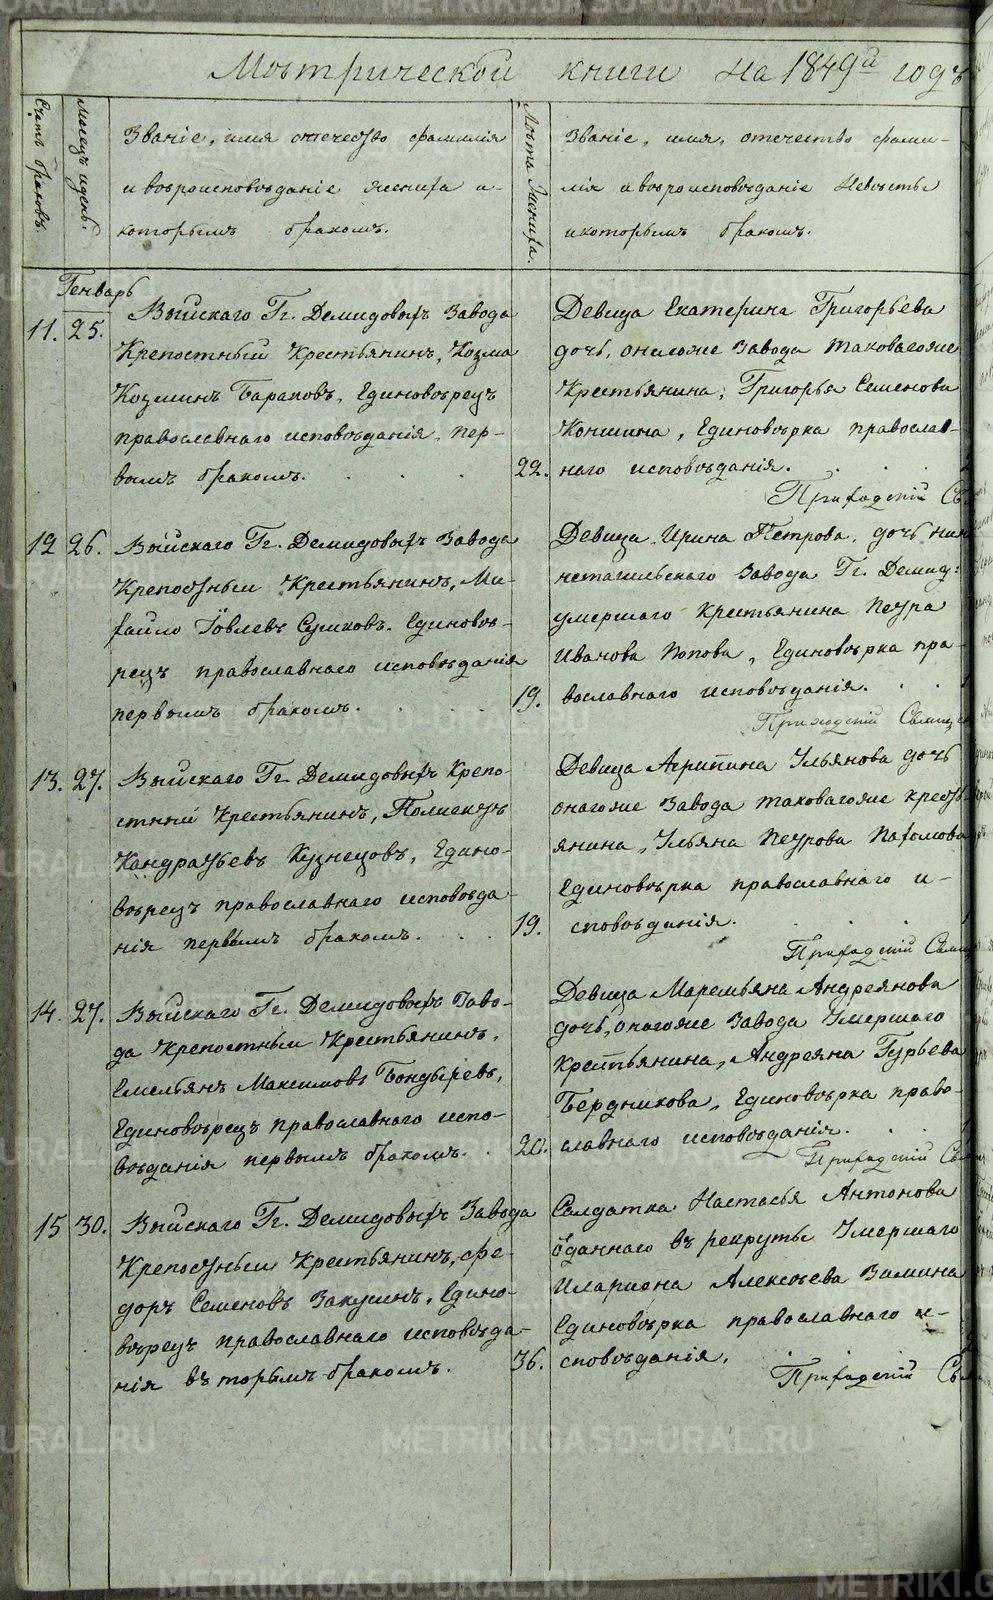 Мѣтрической книги на 1849й годъ
Счетъ браковъ.
Месецъ и день.
Званіе, имя отечество фамилія
и вѣроисповѣданіе жениха и-
которымъ бракомъ.
Лѣта жениха.
Званіе, имя, отечество фами-
лія и вѣроисповѣданіе невѣсты
и которымъ бракомъ.
Генварь
11. 25.
Выйскаго Гг. Демидовыхъ завода
крепостный крестьянинъ, Козма
Козминъ Барановъ, Единовѣрецъ
православнаго исповѣданія, пер-
вымъ бракомъ.
22.
Девица Екатерина Григорьева
дочь, онагоже завода таковагоже
крестьянина, Григорья Семенова
Коншина, Единовѣрка православ-
наго исповѣданія.
Приходскій Св
12 26.
Выйскаго Гг. Демидовыхъ завода
крепостный крестьянинъ, Ми-
хайло Іовлевъ Сушковъ. Единовѣ-
рецъ православнаго исповѣданія
первымъ бракомъ.
19.
Девица Ирина Петрова, дочь ниж
нетагильскаго завода Гг. Демид:
умершаго крестьянина Петра
Иванова Попова, Единовѣрка пра-
вославнаго исповѣданія.
Приходскій Священ
13. 27.
Выйскаго Гг. Демидовыхъ крепо-
стный крестьянинъ, Полиектъ
Кандратьевъ Кузнецовъ, Едино-
вѣрецъ православнаго исповѣда-
нія первымъ бракомъ.
19.
Девица Агрипина Ильянова дочь
онагоже завода таковагоже кресть
янина, Ильяна Петрова Пахомова
Единовѣрка православнаго и-
сповѣданія.
Приходскій Свящ
14. 27.
Выйскаго Гг. Демидовыхъ заво-
да крепостный крестьянинъ,
Емельянъ Максимовъ Бондыревъ,
Единовѣрецъ православнаго испо-
вѣданія первымъ бракомъ.
20.
Девица Маремьяна Андреянова
дочь, онагоже завода умершаго
крестьянина, Андреяна Гурьева
Бердникова, Единовѣрка право-
славнаго исповѣданія.
Приходскій Свя
15 30.
Выйскаго Гг. Демидовыхъ завода
крепостный крестьянинъ, Фе-
доръ Семеновъ Закушинъ, Едино-
вѣрецъ православнаго исповѣда-
нія въторымъ бракомъ.
36.
Салдатка Настасья Антонова
ѿданнаго въ рекруты умершаго
Илариона Алексѣева Зимина
Единовѣрка православнаго и-
сповѣданія.
Приходскій Свя
METRIKI.GASO-URAL.RU